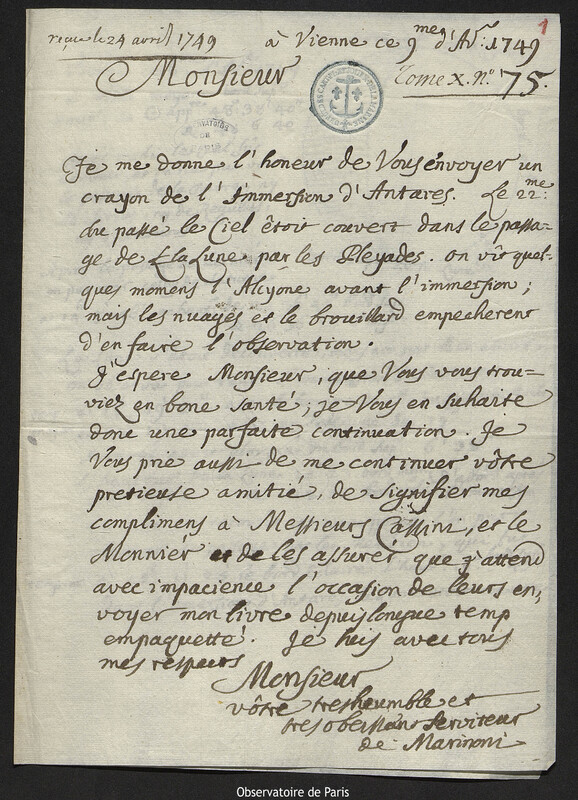 reçue le 24 avril 1749
à Vienne ce 9me d'Avr. 1749
1
Monsieur
Tome X. No. 75.
Je me donne l'honeur de Vous envoyer un
crayon de l'Immersion d'Antares. Le 22me
du passé le Ciel êtoit couvert dans le passa-
gé de la Lune par les Pleyades. on vit quel-
ques momens l'Alcyone avant l'immersion;
mais les nuages et le brouillard empecherent
d'en faire l'observation.
J'espere Monsieur, que Vous vous trou-
viez en bone santé; je Vous en suhaite
donc une parfaite continuation. Je
Vous prie aussi de me continuer vôtre
pretieuse amitié, de signifier mes
complimens à Messieurs Cassini, et le
Monnier et de les assurer que j'attend
avec impacience l'occasion de leurs en,
voyer mon livre depuis longue temp
empaquetté. Je suis avec tous
mes respects
Monsieur
vôtre tres heumble et
tres obeissant Serviteur
de Marinoni
Observatoire de Paris